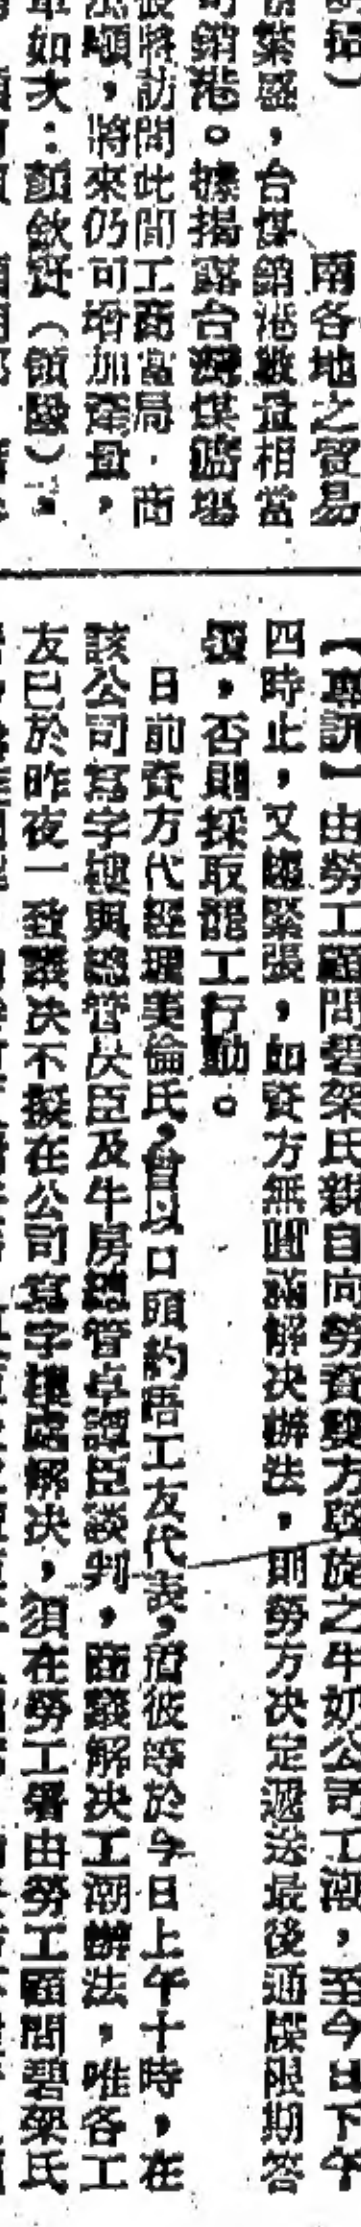 南各地之貿易
繁盛，台煤銷港數量相當
銷港。據揭露台灣煤礦場
彼將訪問此間工商當局，商
順，將來仍可增加產量，
如次：顏欽賢（領隊）、
【專訊】由勞工顧問碧架氏親自向勞資雙方斡旋之牛奶公司工潮，至今日下午
四時止，又趨緊張，如資方無圓滿解決辦法，則勞方決定遞送最後通牒限期答
復，否則採取罷工行動。
日前資方代經理美倫氏，曾以口頭約晤工友代表，着彼等於今日上午十時，在
該公司寫字樓與總管占臣及牛房總管卓譚臣談判，商議解決工潮辦法，唯各工
友已於昨夜一致議決不擬在公司寫字樓處解決，須在勞工署由勞工顧問碧架氏